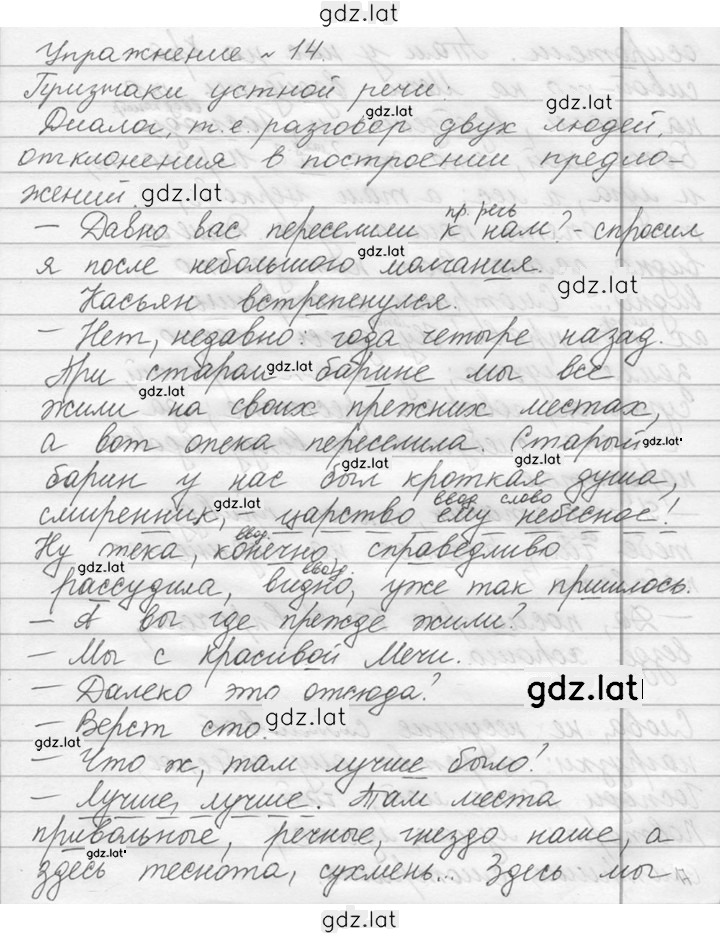 gdz.lat
Упражнение № 14
Признаки устной речи
gdz.lat gdz.lat
Диалог, т.е. разговор двух людей,
отклонения в построении предло-
жений. gdz.lat
пр. речь
— Давно вас переселили к нам? - спросил
gdz.lat
я после небольшого молчания.
gdz.lat
Касьян встрепенулся.
— Нет, недавно: года четыре назад.
gdz.lat
При старом барине мы все
gdz.lat
жили на своих прежних местах,
а вот опека переселила. Старый gdz.lat
gdz.lat gdz.lat
барин у нас был кроткая душа,
ввод. слово
gdz.lat
смиренник, - царство ему небесное!
ввод.
Ну опека, конечно, справедливо
gdz.lat ввод.
рассудила, видно, уже так пришлось.
— А вы где прежде жили?
— Мы с Красивой Мечи.
— Далеко это отсюда? gdz.lat
— Верст сто. gdz.lat
gdz.lat
— Что ж, там лучше было?
— Лучше, лучше. Там места
привольные, речные, гнездо наше, а
gdz.lat
здесь теснота, сухмень... Здесь мы
gdz.lat